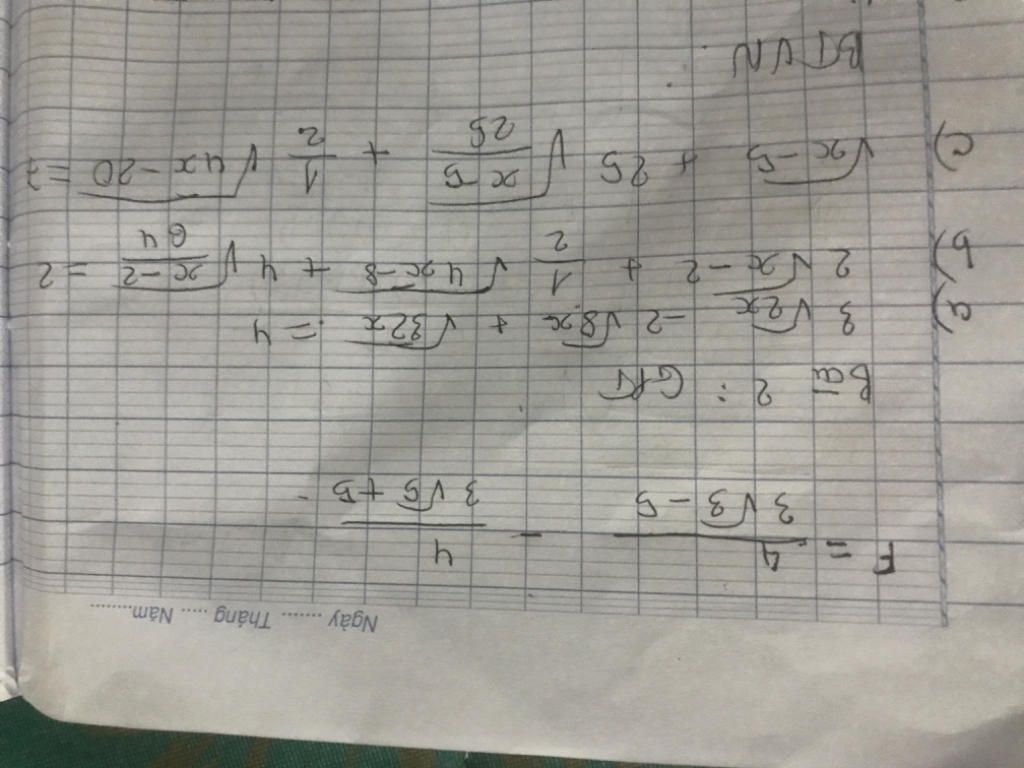 Ngày ...... Tháng ..... Năm..........
F = \frac{4}{3\sqrt{3} - 5} - \frac{4}{3\sqrt{5} + 5}
Bài 2 : GPT
a) 3\sqrt{2x} - 2\sqrt{8x} + \sqrt{32x} = 4
b) 2\sqrt{x-2} + \frac{1}{2} \sqrt{4x-8} + 4\sqrt{\frac{x-2}{64}} = 2
c) \sqrt{x-5} + 25\sqrt{\frac{x-5}{25}} + \frac{1}{2} \sqrt{4x-20} =
BTVN